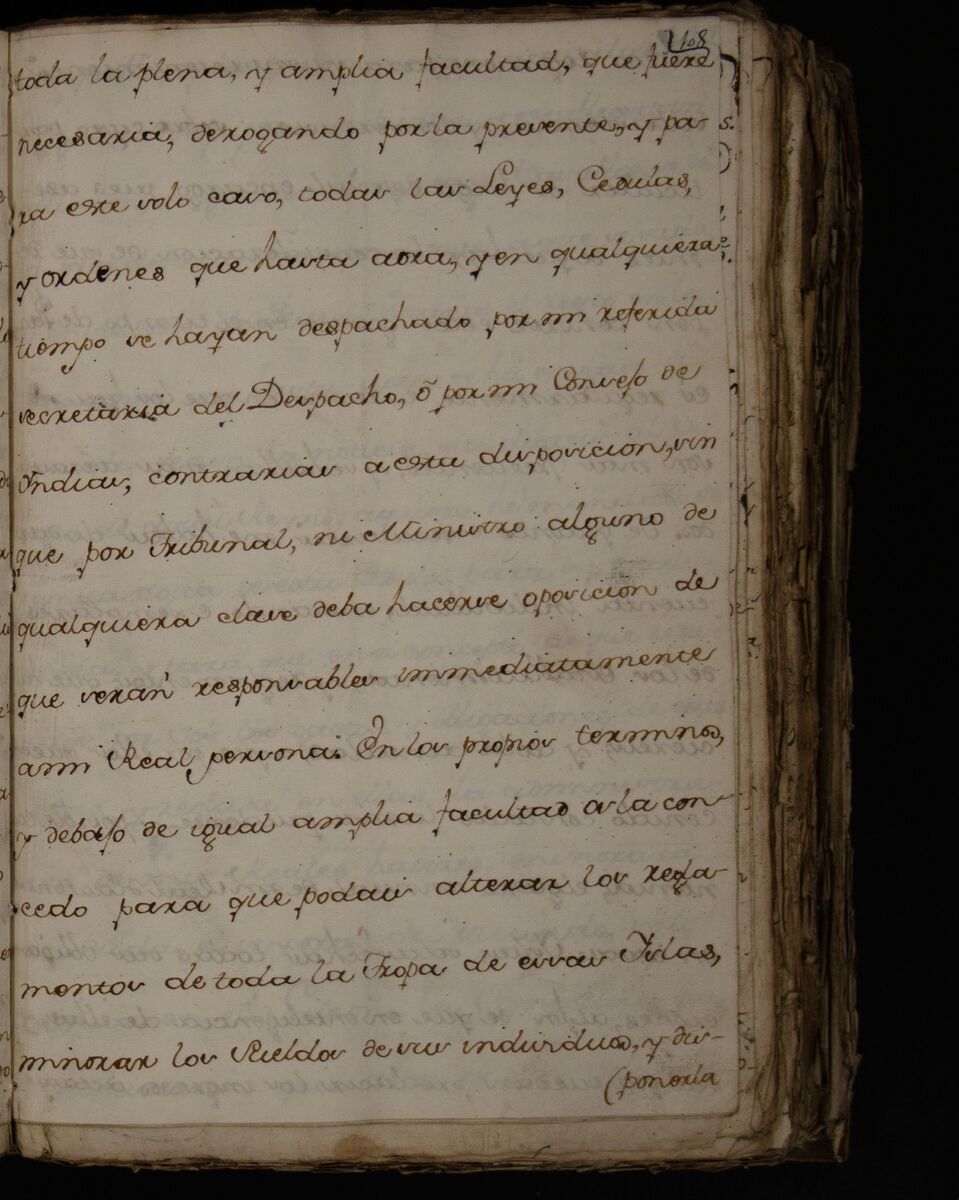 108
toda la plena, y amplia facultad, que fuere
necesaria, derogando por la presente, y pa-
ra este solo caso, todas las Leyes, Cedulas,
y ordenes que hasta aora, y en qualquiera
tiempo se hayan despachado por mi referida
secretaria del Despacho, ō por mi Consejo de
Yndias, contrarias a esta disposicion, sin
que por Tribunal, ni Ministro alguno de
qualquiera clase deba hacerse oposicion de
que serán responsables immediatamente
a mi Real persona. En los propios terminos,
y debajo de igual amplia facultad os la con-
cedo para que podais alterar los regla-
mentos de toda la Tropa de essas Yslas,
minorar los sueldos de sus individuos, y dis-
(ponerla